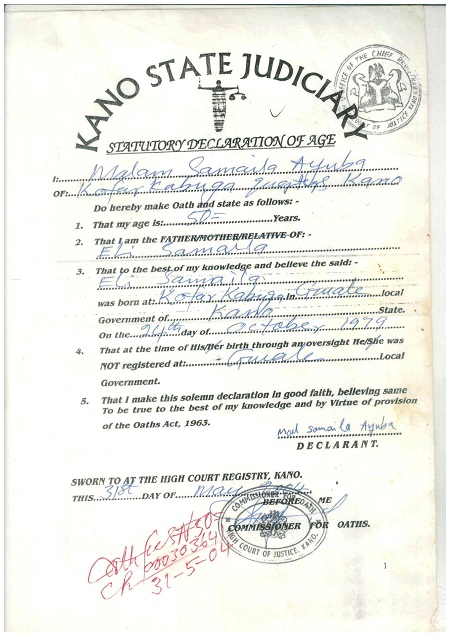 KANO STATE JUDICIARY
OFFICE OF THE CHIEF REGISTRAR
COURT OF JUSTICE KANO
STATUTORY DECLARATION OF AGE
I: Malam Samaila Ayuba
OF: Kofar Kabuga Kano
Do hereby make Oath and state as follows: -
1. That my age is: 50= Years.
2. That I am the FATHER/MOTHER/RELATIVE OF: -
Eli Samaila
3. That to the best of my knowledge and believe the said: -
Eli Samaila
was born at: Kofar Kabuga in Gwale local
Government of Kano State.
On the 24th day of October, 1979
4. That at the time of His/her birth through an oversight He/She was
NOT registered at: Gwale Local
Government.
5. That I make this solemn declaration in good faith, believing same
To be true to the best of my knowledge and by Virtue of provision
of the Oaths Act, 1963.
Mal Samaila Ayuba
DECLARANT.
SWORN TO AT THE HIGH COURT REGISTRY, KANO.
THIS 31st DAY OF May 2004
BEFORE ME
COMMISSIONER FOR OATHS.
COMMISSIONER FOR OATH
HIGH COURT OF JUSTICE, KANO.
CR 00030364
31-5-04
1